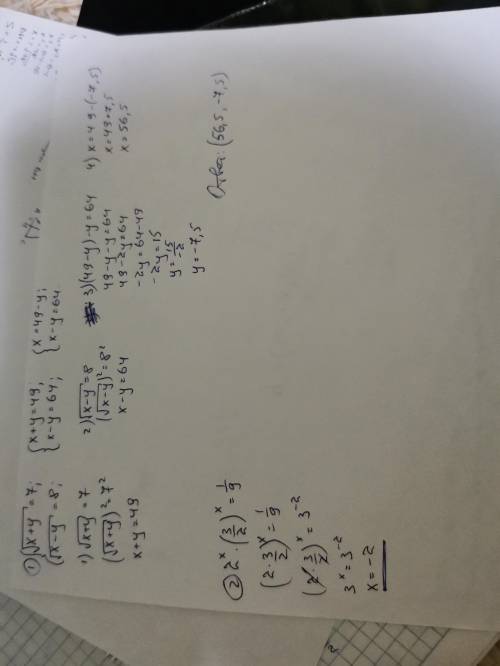 ① { √x+y = 7;
√x-y = 8;
{ x+y = 49;
x-y = 64;
{ x = 49-y;
x-y = 64
1) √x+y = 7
(√x+y)² = 7²
x+y = 49
2) √x-y = 8
(√x-y)² = 8²
x-y = 64
3) (49-y)-y = 64
49-y-y = 64
49-2y = 64
-2y = 64-49
-2y = 15
y = 15/-2
y = -7,5
4) x = 49-(-7,5)
x = 49+7,5
x = 56,5
Ответ: (56,5, -7,5)
② 2ˣ · (3/2)ˣ = 1/9
(2 · 3/2)ˣ = 1/9
(2 · 3/2)ˣ = 3⁻²
3ˣ = 3⁻²
x = -2